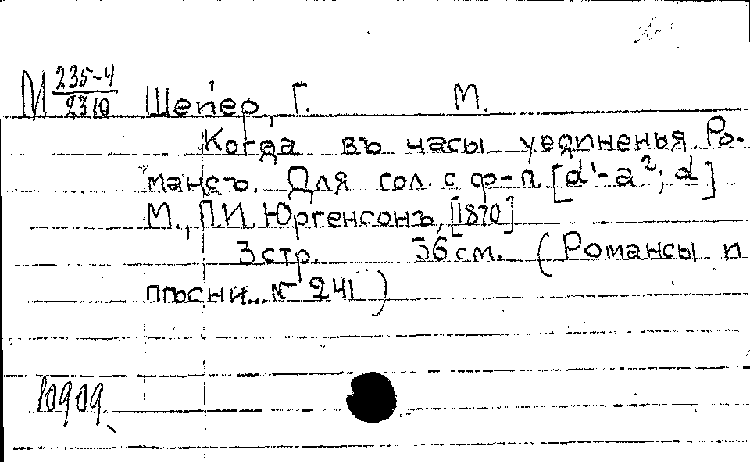 М 235-4/2310 Шепер, Г. М.
Когда въ часы уединенья. Ро-
мансъ. Для гол. с ф-п [d¹-a²; d]
М., П.И. Юргенсонъ, [1870]
3 стр. 36 см. (Романсы и
пѣсни... № 241)
10909